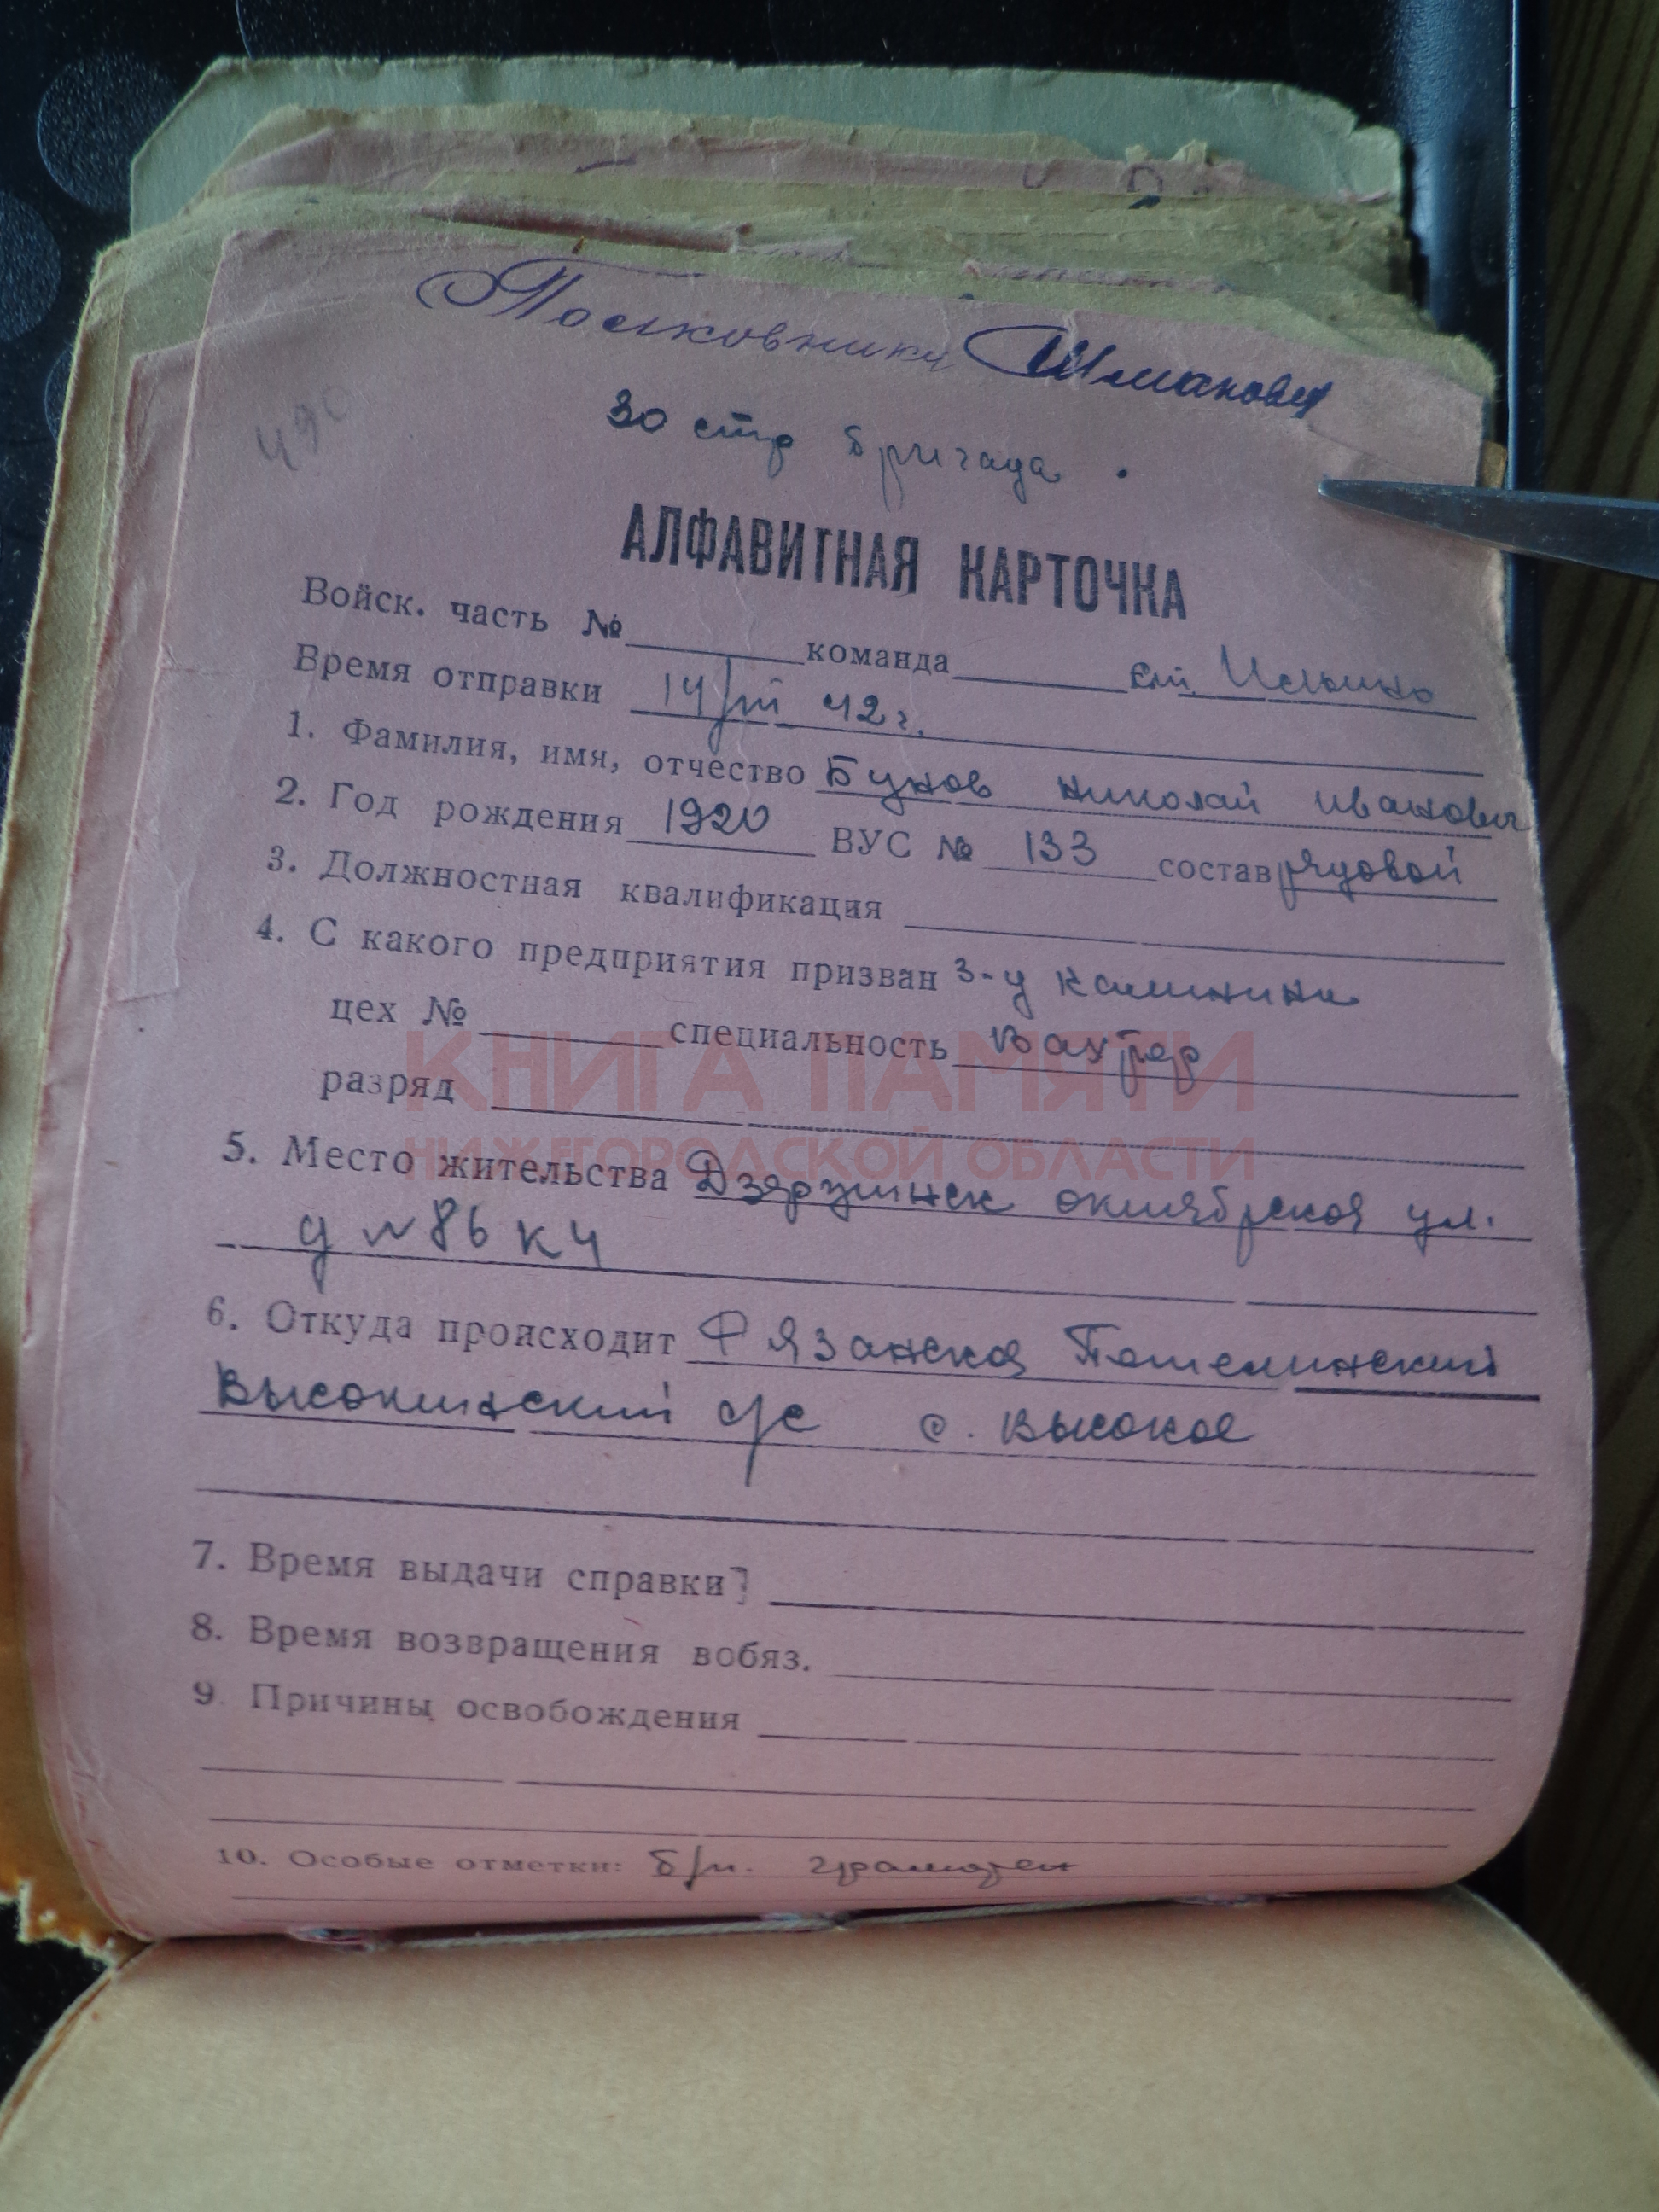 Полковнику Шманову
30 стр бригада.
АЛФАВИТНАЯ КАРТОЧКА
Войск. часть № команда ст. Ильино
Время отправки 14/III 42 г.
1. Фамилия, имя, отчество Бунов Николай Иванович
2. Год рождения 1920 ВУС № 133 состав рядовой
3. Должностная квалификация
4. С какого предприятия призван 3-у Калинина
цех № специальность Вахтер
разряд
КНИГА ПАМЯТИ
НИЖЕГОРОДСКОЙ ОБЛАСТИ
5. Место жительства Дзержинск октябрьская ул.
д №86 к 4
6. Откуда происходит Рязанская
с/с с. Высокое
7. Время выдачи справки
8. Время возвращения вобяз.
9. Причины освобождения
10. Особые отметки: б/п. грамотен